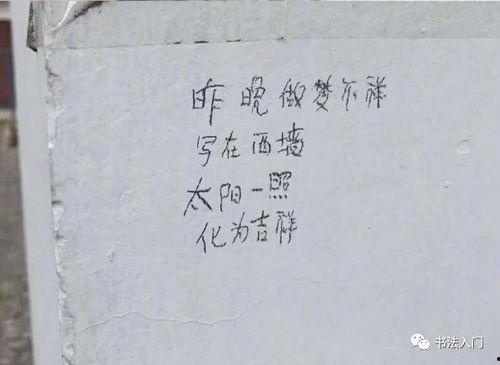 昨晚做梦不祥
写在西墙
太阳一照
化为吉祥
书法入门